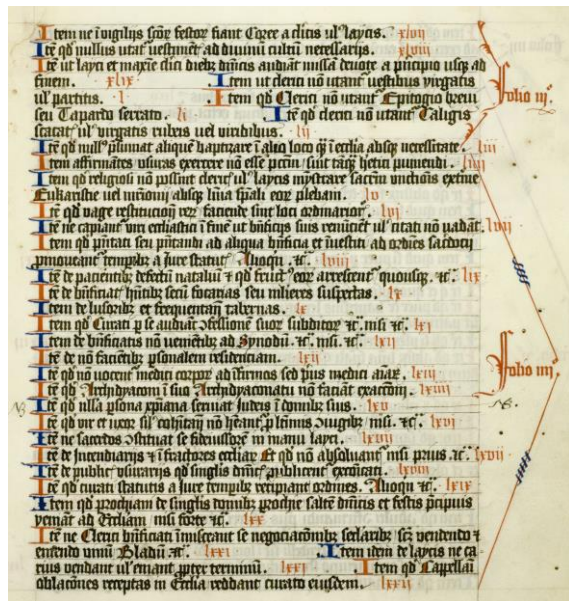 Item ne ī vigilijs scōr festor fiant Coree a cl'icis ul' laycis. xlvij
Itē qd nullus utat' vestimēt' ad divinū cultū necessarijs. xlviij
Itē ut layci et maxīe clici dieb' dnīcis audiāt missā devote a p'ncipio usq ad
finem. xlix Item ut clerici nō utant' vestibus virgatis
ul' partitis. l Item qd Clerici nō utant' Epitogio brevi
seu Tapardo serrato. li Itē qd clerici nō utant' Caligis
scacat' ul' virgatis rubeis uel viridibus. lij
Itē qd null' p'sumat aliquē baptizare ī alio loco q' ī ecclia absq necessitate liij
Item affirmātes usuras exercere nō esse pctm sint tāq heretici puniendi. liiij
Item qd religiosi nō possint clericis ul' laycis mīstrare sacrm unctiōis extreme
Eukaristie vel mr̄imonij absq lnīa spāli eor plebani. lv
Itē qd vage restitucion rer faciende sint locī ordinarior. lvj
Itē ne capiant' viri eccliastici ī fine ut bn̄ficijs suis renuncient ul' citati nō vadāt. lvij
Item qd pn̄tati seu pn̄tandi ad aliqua bn̄ficia et īvestiti ad ordīes sacerdocij
p'moveant' temporib' a Jure statut'. Alioqn 7c. lviij
Itē de pacientib' defectū nataliū 7 qd fruct' eor arrescent' quousq. 7c. lix
Itē de bn̄ficiatis hn̄tib' secū focarias seu mlieres suspectas. lx
Item de lusorib' et frequentan̄ tabernas. lx
Item qd Curati p se audiāt 9fessione suor subditor 7c. nisi 7c. lxj
Item de bn̄ficiatis nō venientib' ad Synodū. 7c. nisi 7c. lxij
Itē de nō facientib' p'sonalem residenciam. lxij
Itē qd nō vocent' medici corpor' ad īfirmos sed p'us medici aīar. lxiij
Itē qd Archidyaconi ī suo Archidyaconatu nō faciāt exaccōni. lxiiij
Itē qd nlla p'sona xpiana serviat Judeis ī domib' suis. lxv
Itē qd vir et uxor sil' cohītan̄ nō hēant' p l'timis 9iugib' nisi. 7c. lxvj
Itē ne sacerdos 9stituat se fideiussorē in manu layci. lxvij
Itē de Incendiarijs 7 īfractores eccliar Et qd nō absolvant' nisi prius 7c. lxvij
Itē de public' usurarijs qd singlis dnīc' publicent' excōicati. lxviij
Itē qd curati statutis a Jure temporib' recipiant ordines. Alioqn 7c. lxix
Item qd prochiani de singlis domib' prochie saltē dnīcis et festis p'cipuis
veniāt ad Eccliam nisi forte 7c. lxx
Itē ne Clerici bn̄ficiati īmisceant se negociacōnib' seclarib' scz vendendo 7
emendo vinū Bladū 7c. lxxj Item idem de laycis ne ca-
rius vendant ul' emant ppter terminū. lxxj Item qd Cappellani
oblacōnes receptas in Ecclia reddant curato eiusdem. lxxij
Folio iij
Folio iiij